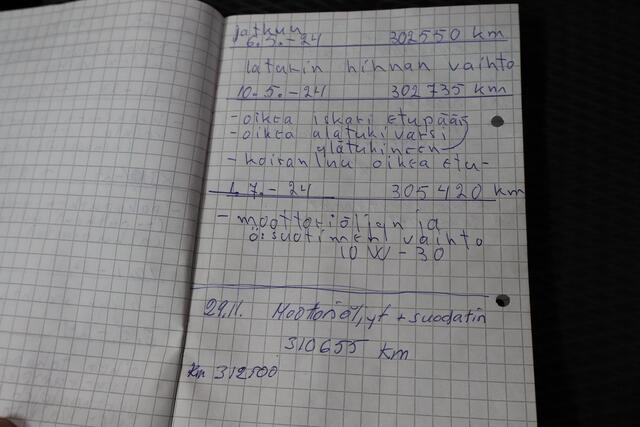 jatkuu
6.5.-24 302550 km
laturin hihnan vaihto
10.5.-24 302735 km
-oikea iskari etupää
-oikea alatukivarsi
ylätukineen
-koiranluu oikea etu-
1.7.-24 305420 km
- moottoriöljyn ja
ö.suotimen vaihto
10W-30
29.11. Moottoriöljyt + suodatin
310655 km
km 312500